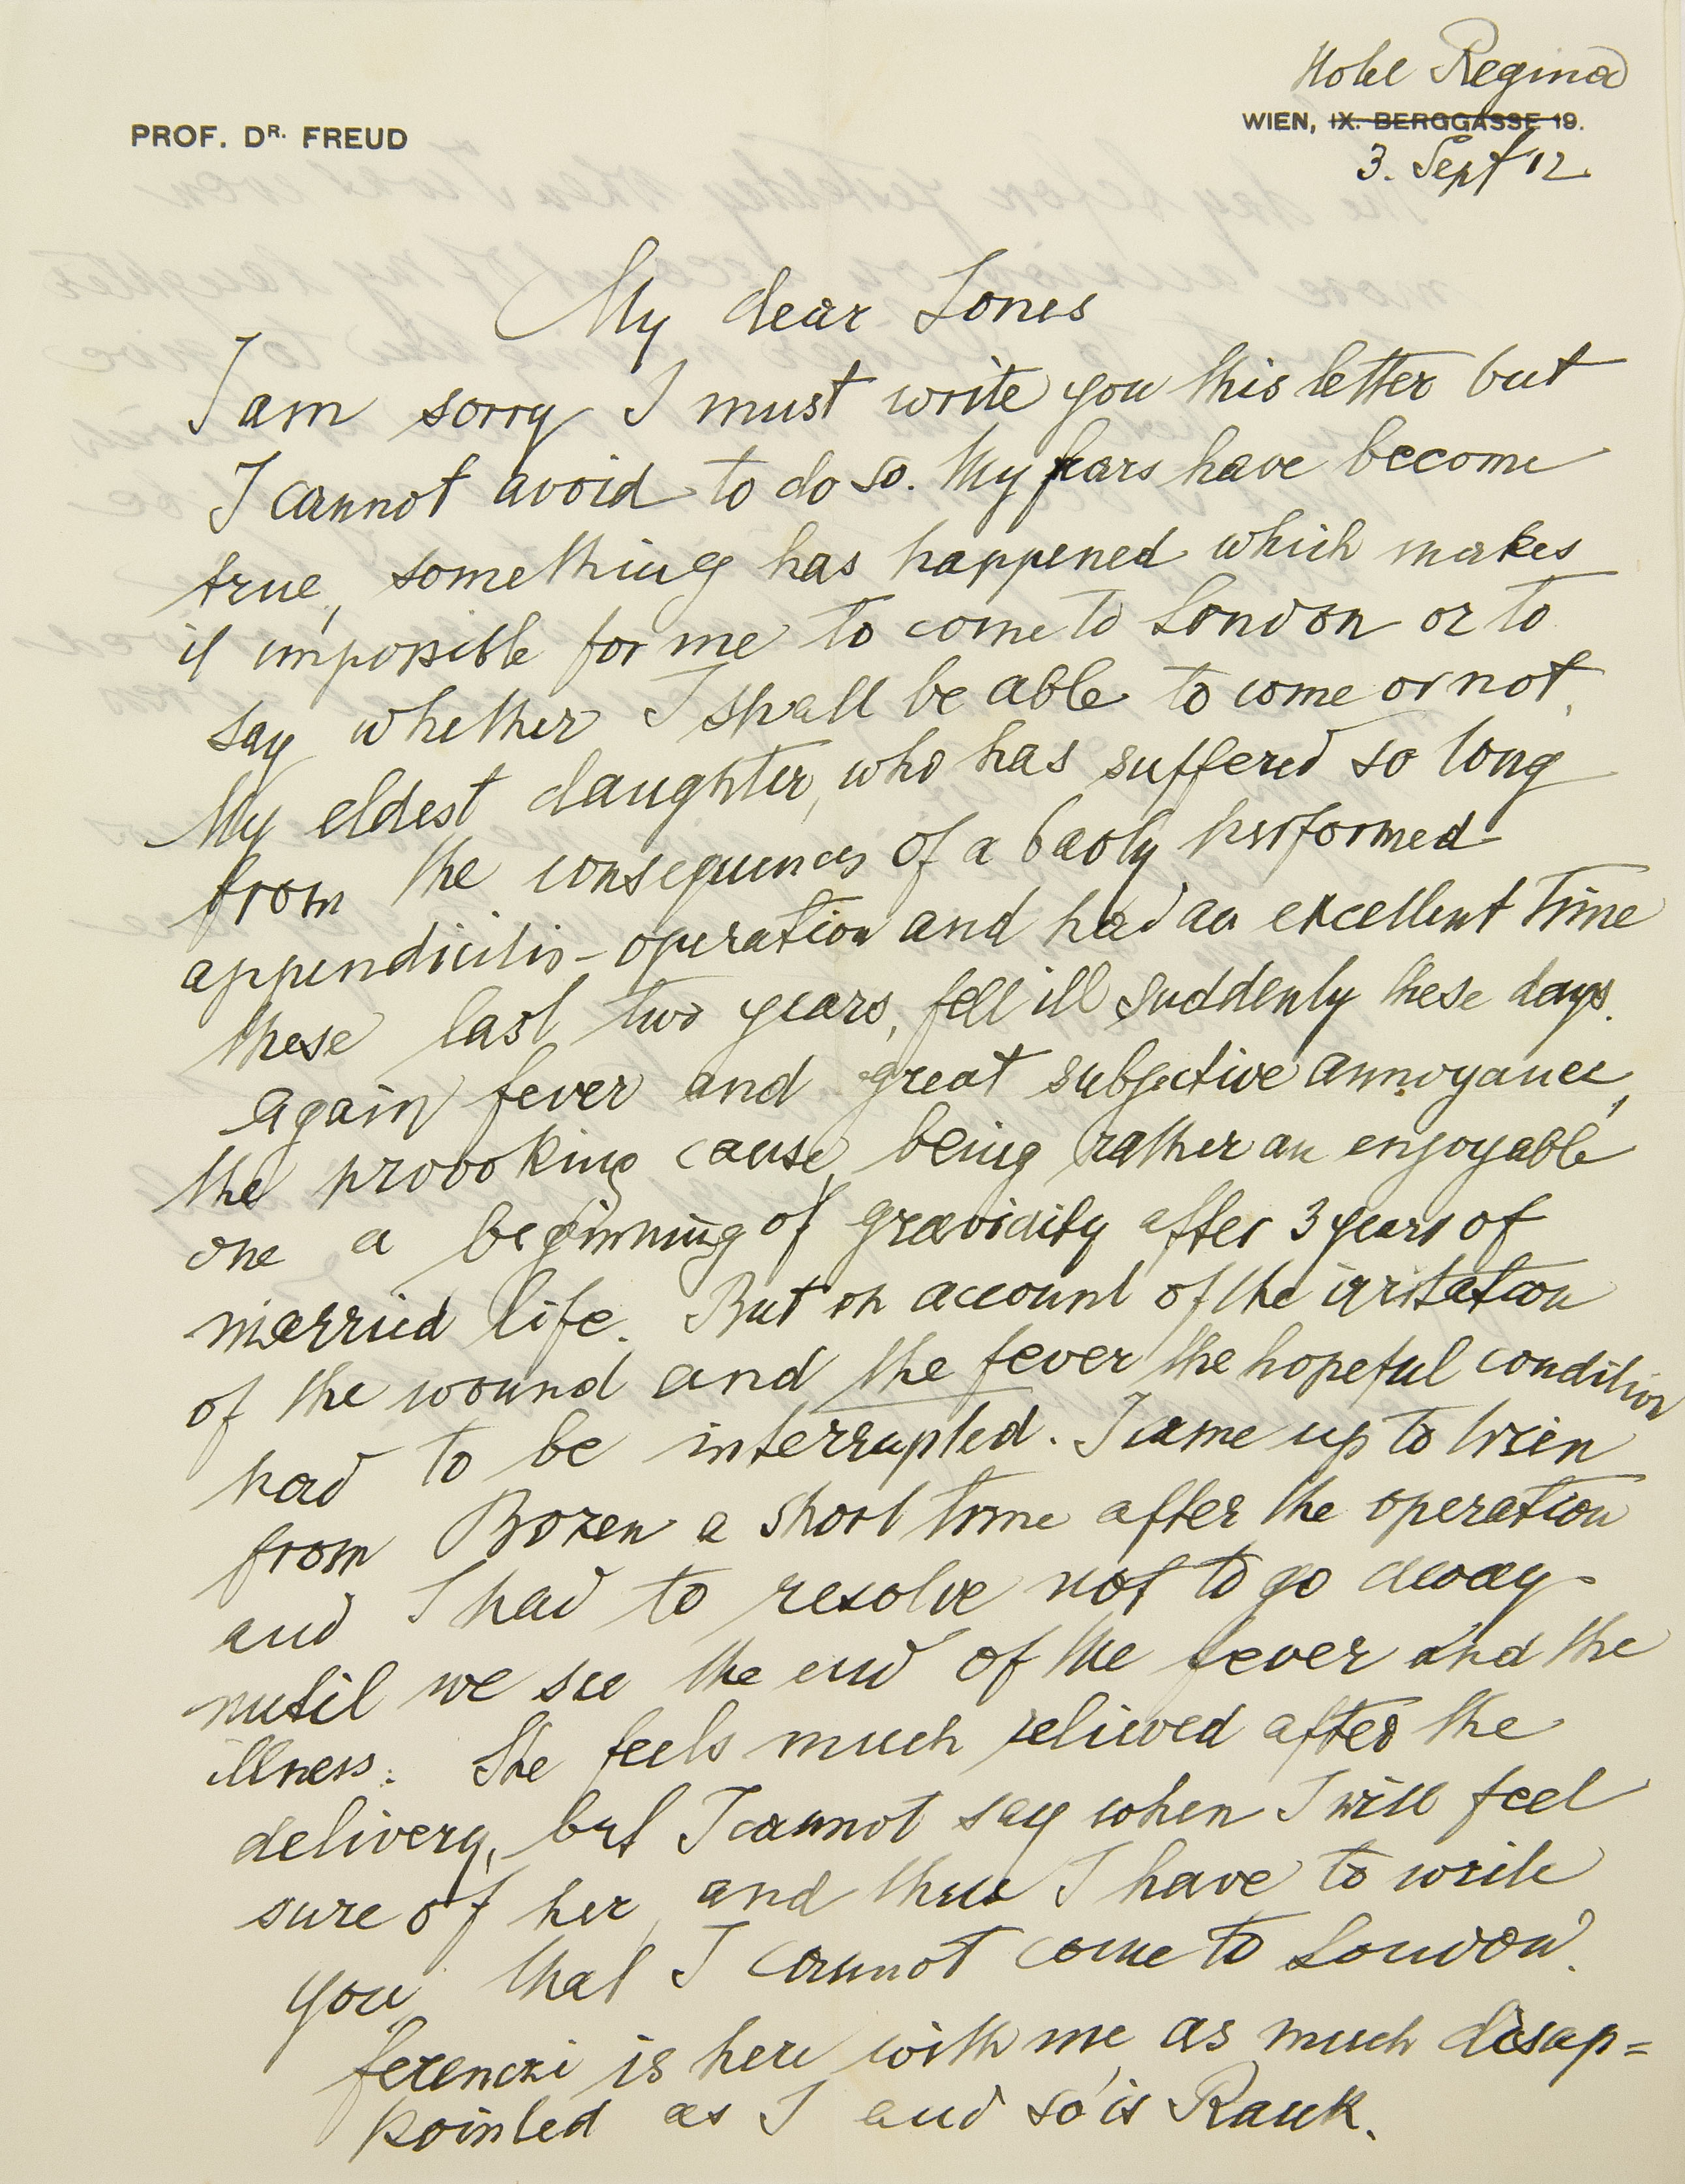 Hotel Regina
PROF. DR. FREUD
WIEN, IX. BERGGASSE 19.
3. Sept 12.
My dear Jones
I am sorry I must write you this letter but
I cannot avoid to do so. My fears have become
true, something has happened which makes
it impossible for me to come to London or to
say whether I shall be able to come or not.
My eldest daughter, who has suffered so long
from the consequences of a badly performed
appendicitis-operation and had an excellent time
these last two years, fell ill suddenly these days.
Again fever and great subjective annoyances,
the provoking cause being rather an enjoyable
one a beginning of gravidity after 3 years of
married life. But on account of the irritation
of the wound and the fever the hopeful condition
had to be interrupted. I came up to Wien
from Bozen a short time after the operation
and I had to resolve not to go away
until we see the end of the fever and the
illness. She feels much relieved after the
delivery, but I cannot say when I will feel
sure of her, and thus I have to write
you that I cannot come to London.
Ferenczi is here with me as much disap=
pointed as I and so is Rank.